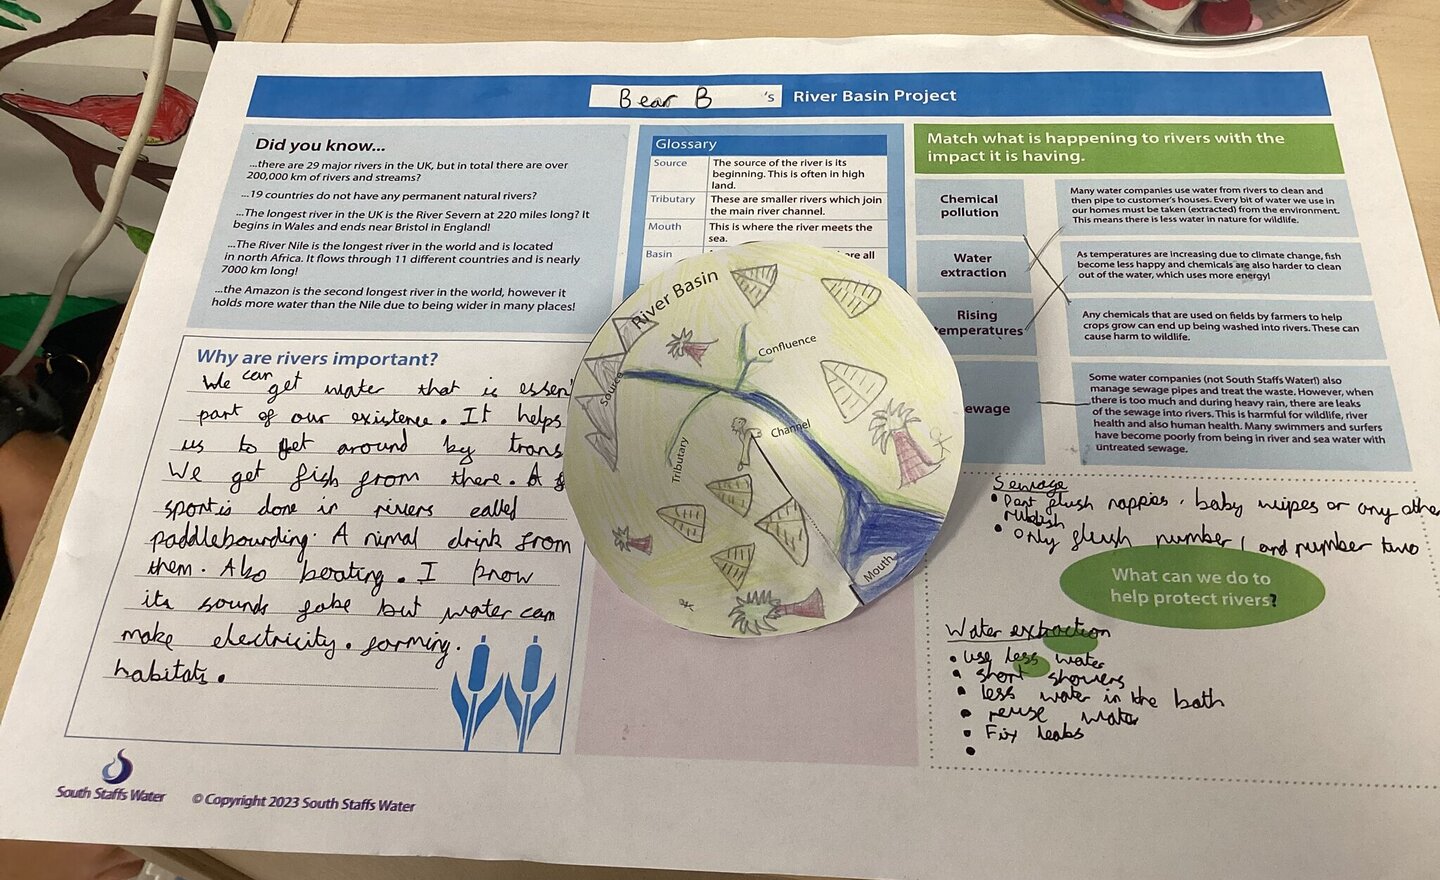 Bear B 's River Basin Project
Did you know...
...there are 29 major rivers in the UK, but in total there are over
200,000 km of rivers and streams?
...19 countries do not have any permanent natural rivers?
...The longest river in the UK is the River Severn at 220 miles long? It
begins in Wales and ends near Bristol in England!
...The River Nile is the longest river in the world and is located
in north Africa. It flows through 11 different countries and is nearly
7000 km long!
...the Amazon is the second longest river in the world, however it
holds more water than the Nile due to being wider in many places!
Why are rivers important?
We can get water that is essen
part of our existence. It helps
us to get around by trans
We get fish from there. A
sport is done in rivers called
paddlebourding. A nimal drink from
them. Also boating. I know
its sounds fake but water can
make electricity. farming.
habitats.
South Staffs Water
© Copyright 2023 South Staffs Water
Glossary
Source The source of the river is its
beginning. This is often in high
land.
Tributary These are smaller rivers which join
the main river channel.
Mouth This is where the river meets the
sea.
Basin
River Basin
Source
Confluence
Tributary
Channel
Mouth
Match what is happening to rivers with the
impact it is having.
Chemical
pollution
Water
extraction
Rising
temperatures
ewage
Many water companies use water from rivers to clean and
then pipe to customer's houses. Every bit of water we use in
our homes must be taken (extracted) from the environment.
This means there is less water in nature for wildlife.
As temperatures are increasing due to climate change, fish
become less happy and chemicals are also harder to clean
out of the water, which uses more energy!
Any chemicals that are used on fields by farmers to help
crops grow can end up being washed into rivers. These can
cause harm to wildlife.
Some water companies (not South Staffs Water!) also
manage sewage pipes and treat the waste. However, when
there is too much and during heavy rain, there are leaks
of the sewage into rivers. This is harmful for wildlife, river
health and also human health. Many swimmers and surfers
have become poorly from being in river and sea water with
untreated sewage.
Sewage
• Dont flush nappies, baby wipes or any other
rubbish
• only flush number 1 and number two
What can we do to
help protect rivers?
Water extraction
• use less water
• short showers
• less water in the bath
• reuse water
• Fix leaks
•